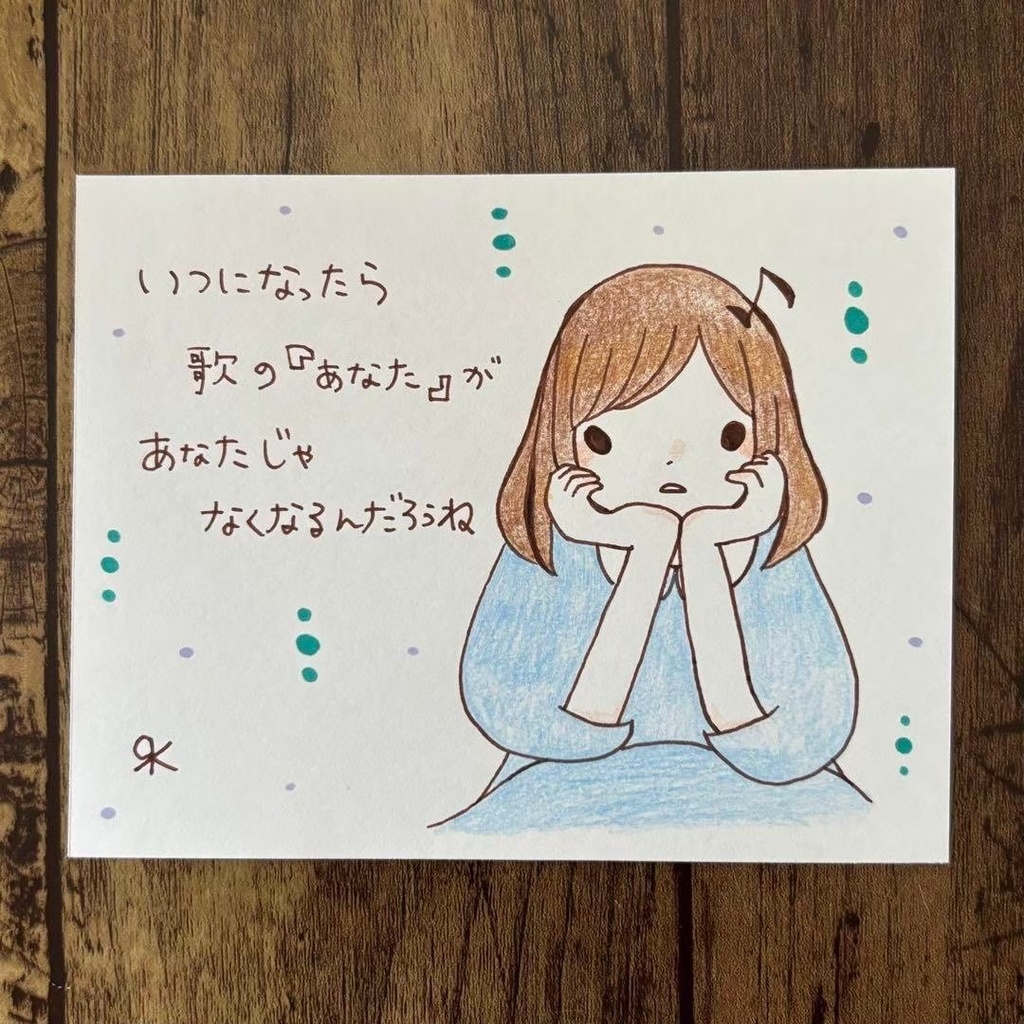 いつになったら
歌の『あなた』が
あなたじゃ
なくなるんだろうね